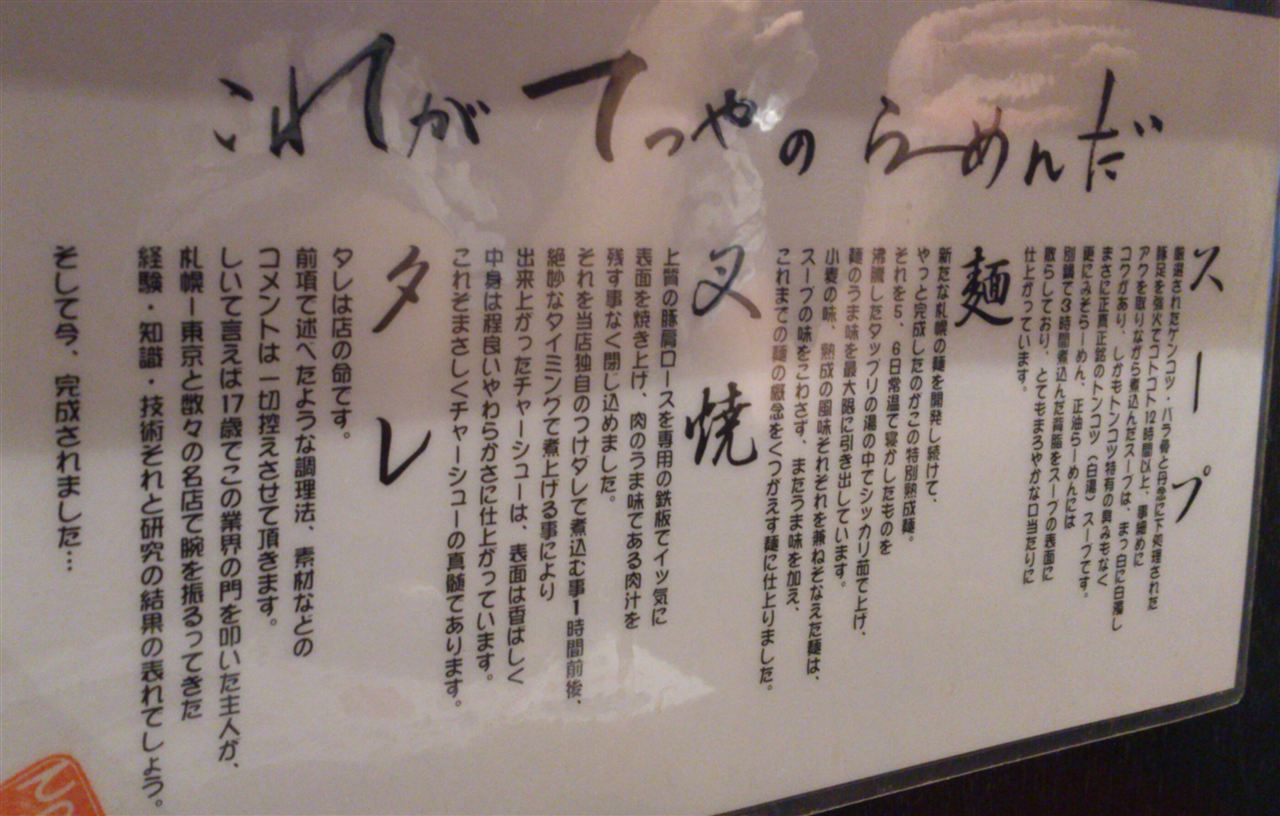 これが てつやの らーめんだ
スープ
厳選されたゲンコツ・バラ骨と丹念に下処理された
豚足を強火でコトコト12時間以上、事細めに
アクを取りながら煮込んだスープは、まっ白に白濁し
コクがあり、しかもトンコツ特有の臭みもなく
まさに正真正銘のトンコツ（白湯）スープです。
更にみそらーめん、正油らーめんには
別鍋で3時間煮込んだ背脂をスープの表面に
散らしており、とてもまろやかな口当たりに
仕上がっています。
麺
新たな札幌の麺を開発し続けて、
やっと完成したのがこの特別熟成麺。
それを5、6日常温で寝かしたものを
沸騰したタップリの湯の中でシッカリ茹で上げ、
麺のうま味を最大限に引き出しています。
小麦の味、熟成の風味それぞれを兼ねそなえた麺は、
スープの味をこわさず、またうま味を加え、
これまでの麺の概念をくつがえす麺に仕上りました。
叉焼
上質の豚肩ロースを専用の鉄板でイッ気に
表面を焼き上げ、肉のうま味である肉汁を
残す事なく閉じ込めました。
それを当店独自のつけダレで煮込む事1時間前後、
絶妙なタイミングで煮上げる事により
出来上がったチャーシューは、表面は香ばしく
中身は程良いやわらかさに仕上がっています。
これぞまさしくチャーシューの真髄であります。
タレ
タレは店の命です。
前項で述べたような調理法、素材などの
コメントは一切控えさせて頂きます。
しいて言えば17歳でこの業界の門を叩いた主人が、
札幌ー東京と数々の名店で腕を振るってきた
経験・知識・技術それと研究の結果の表れでしょう。
そして今、完成されました…